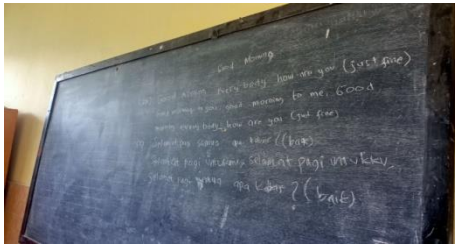 Good Morning
Good morning every body how are you (just fine)
Good morning to you Good morning to me, Good
morning every body, how are you (just fine)
Selamat pagi semua apa kabar? (baik)
Selamat pagi untukmu, Selamat pagi untukku,
Selamat pagi semua apa kabar? (baik)